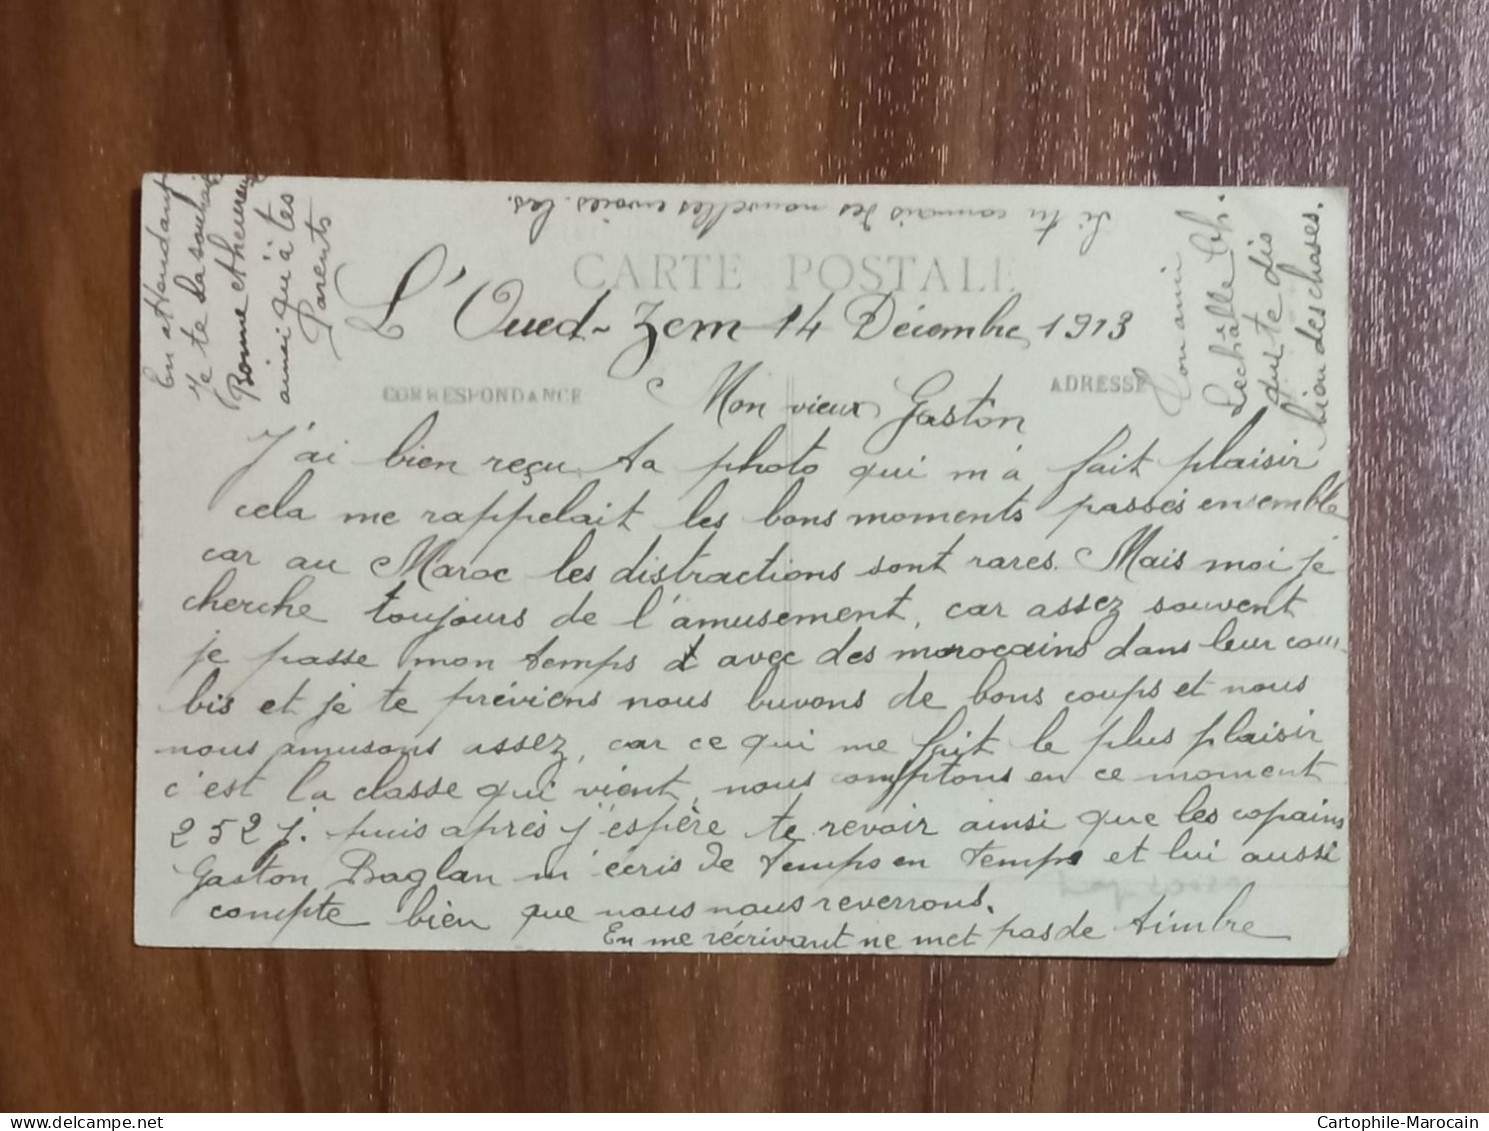 CARTE POSTALE
L'Oued-Zem 14 Décembre 1913
CORRESPONDANCE
ADRESSE
Mon vieux Gaston
J'ai bien reçu ta photo qui m'a fait plaisir
cela me rappelait les bons moments passés ensemble
car au Maroc les distractions sont rares. Mais moi je
cherche toujours de l'amusement, car assez souvent
je passe mon temps avec des marocains dans leur cour
bis et je te préviens nous buvons de bons coups et nous
nous amusons assez, car ce qui me fait le plus plaisir
c'est la classe qui vient, nous comptons en ce moment
252 j. puis après j'espère te revoir ainsi que les copains
Gaston Baglan m'écris de temps en temps et lui aussi
compte bien que nous nous reverrons.
En me récrivant ne met pas de timbre
En attendant
je te la souhaite
Bonne et heureuse
ainsi qu'à tes
Parents
Si tu connais des nouvelles envoies les.
Ton ami
Lechâlle Ch.
qui te dis
bien des choses.
Cartophile-Marocain